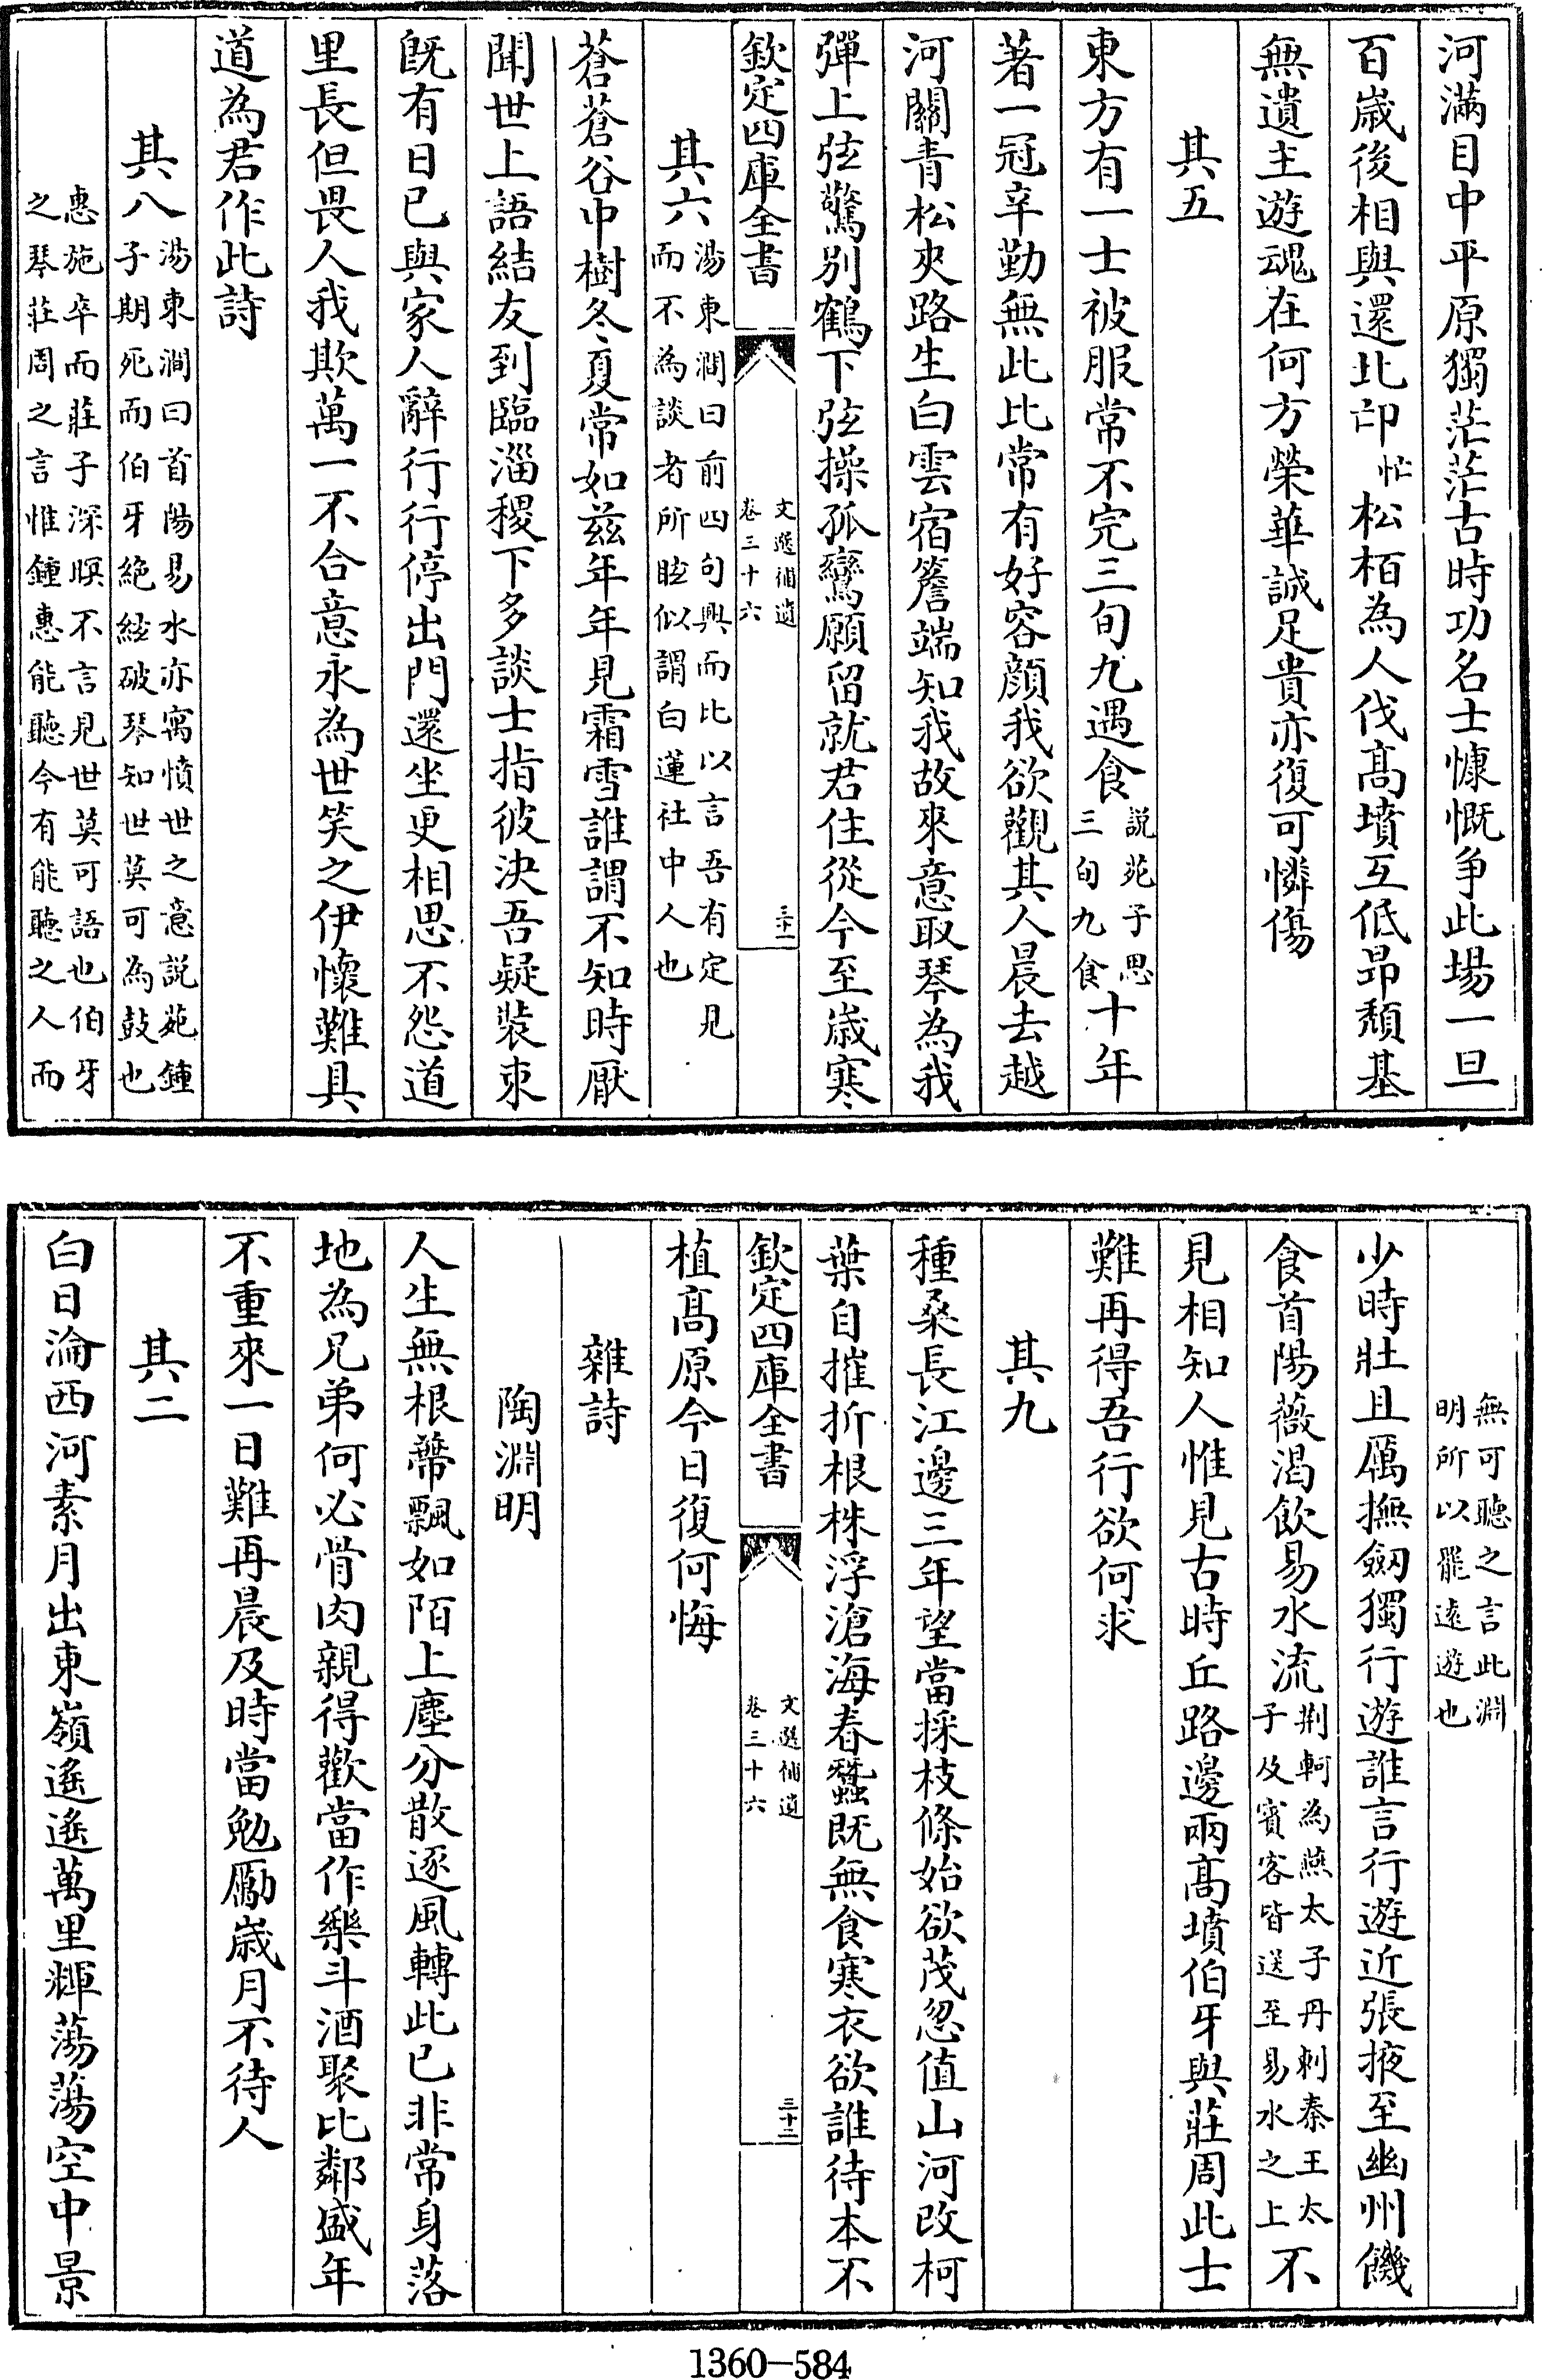 河滿目中平原獨茫茫古時功名士慷慨爭此場一旦
百歲後相與還北卭忙松栢為人伐髙墳互低昻頽基
無遺主遊魂在何方榮華誠足貴亦復可憐傷
其五
東方有一士被服常不完三旬九遇食説苑子思三旬九食十年
著一冠辛勤無此比常有好容顔我欲觀其人晨去越
河關青松夾路生白雲宿簷端知我故來意取琴為我
彈上弦驚别鶴下弦操孤鸞願留就君住從今至歲寒
欽定四庫全書
文選補遺
卷三十六
三十一
其六湯東澗曰前四句興而比以言吾有定見而不為談者所眩似謂白蓮社中人也
蒼蒼谷中樹冬夏常如兹年年見霜雪誰謂不知時厭
聞世上語結友到臨淄稷下多談士指彼決吾疑裝束
既有日已與家人辭行行停出門還坐更相思不怨道
里長但畏人我欺萬一不合意永為世笑之伊懷難具
道為君作此詩
其八湯東澗曰首陽易水亦寓憤世之意説苑鍾子期死而伯牙絶絃破琴知世莫可為鼓也
惠施卒而莊子深暝不言見世莫可語也伯牙之琴莊周之言惟鍾惠能聽今有能聽之人而
無可聽之言此淵明所以罷逺遊也
少時壯且厲撫劒獨行遊誰言行遊近張掖至幽州饑
食首陽薇渇飲易水流荆軻為燕太子丹刺秦王太子及賓客皆送至易水之上不
見相知人惟見古時丘路邊兩髙墳伯牙與莊周此士
難再得吾行欲何求
其九
種桑長江邊三年望當採枝條始欲茂忽值山河改柯
葉自摧折根株浮滄海春蠶既無食寒衣欲誰待本不
欽定四庫全書
文選補遺
卷三十六
三十二
植髙原今日復何悔
雜詩
陶淵明
人生無根蔕飄如陌上塵分散逐風轉此已非常身落
地為兄弟何必骨肉親得歡當作樂斗酒聚比鄰盛年
不重來一日難再晨及時當勉勵歲月不待人
其二
白日淪西河素月出東嶺遙遙萬里輝蕩蕩空中景
1360—584